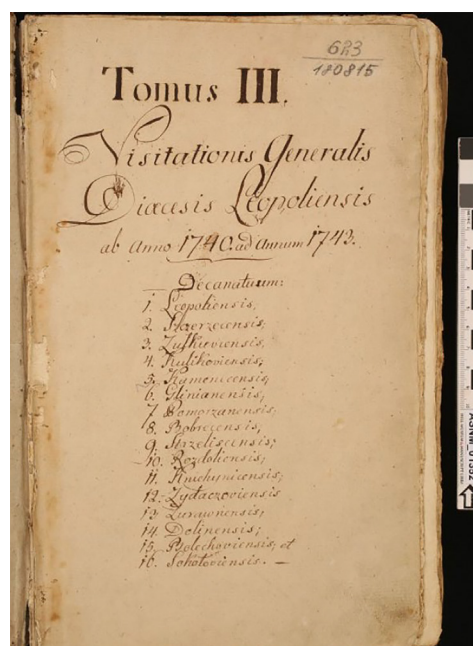 623
180815
Tomus III.
Visitationis Generalis
Diæcesis Leopoliensis
ab Anno 1740. ad Annum 1743.
Decanatuum:
1. Leopoliensis,
2. Szczerzecensis;
3. Zulkieviensis,
4. Kulikoviensis;
5. Kamonecensis,
6. Glinianensis,
7. Pomorzanensis,
8. Bobrecensis,
9. Strzeliscensis;
10. Rozdoliensis,
11. Knichynicensis,
12. Zydaczoviensis
13. Zurawnensis,
14. Dolinensis;
15. et
16. Sokoloviensis. —